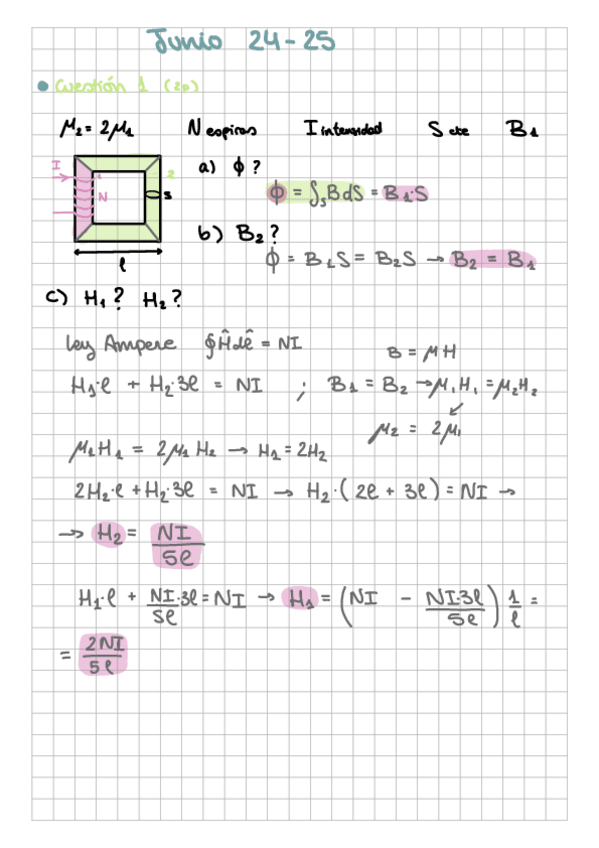 Junio 24-25
Cuestión 1 (2p)
μ₂ = 2μ₁ N espiras I intensidad S cte B₁
I 1 2 S N l
a) ϕ?
ϕ = ∫ₛBdS = B₁·S
b) B₂?
ϕ = B₁S = B₂S → B₂ = B₁
c) H₁? H₂?
Ley Ampere ∮H̄dē = NI B = μH
H₁·l + H₂·3l = NI ; B₁ = B₂ → μ₁H₁ = μ₂H₂
μ₂ = 2μ₁
μ₁H₁ = 2μ₁H₂ → H₁ = 2H₂
2H₂·l + H₂·3l = NI → H₂·(2l + 3l) = NI →
→ H₂ = NI/5l
H₁·l + NI/5l·3l = NI → H₁ = (NI - NI·3l/5l) 1/l =
= 2NI/5l